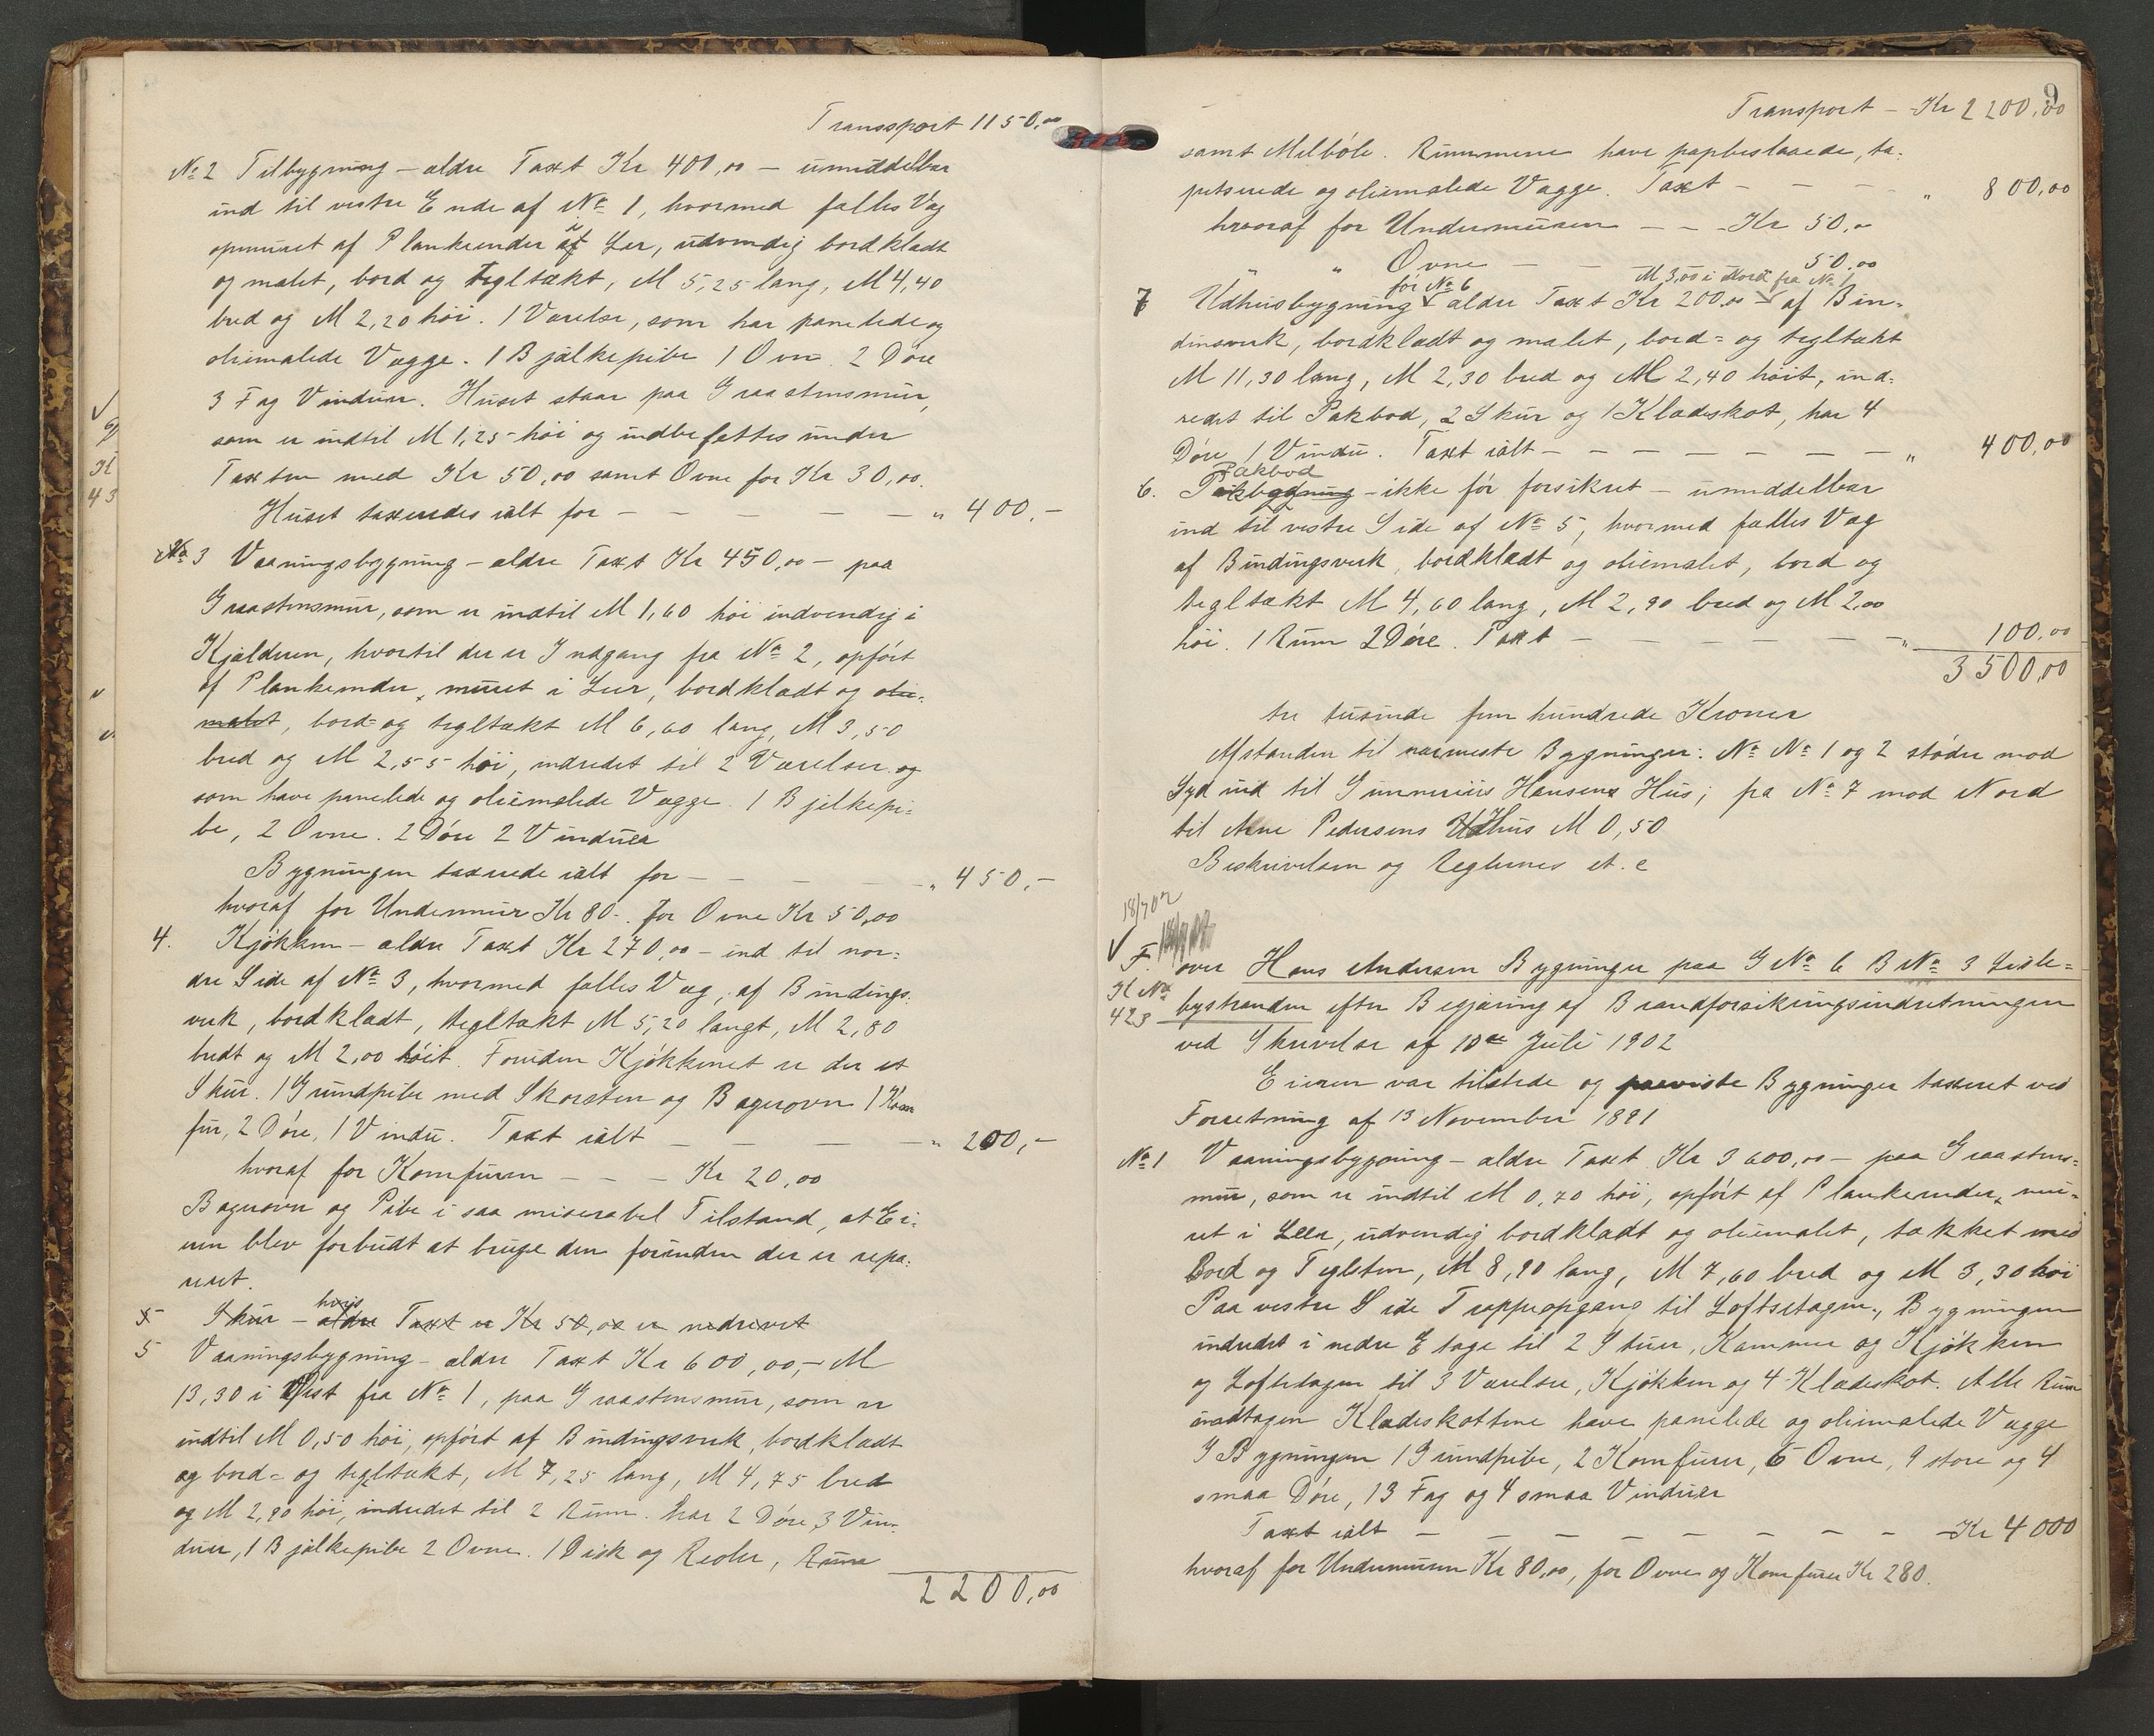 Transsport 1150,00
No 2 Tilbygning - ældre Taxt Kr 400,00 - umiddelbar
ind til vestre Ende af No 1, hvormed fælles Væg
opmuret af Plankeender i Ler, udvendig bordklædt
og malet, bord og tegltækt, M 5,25 lang, M 4,40
bred og M 2,20 høi. 1 Værelse, som har panelede og
oliemalede Vægge. 1 Bjælkepibe 1 Ovn. 2 Døre
3 Fag Vinduer. Huset staar paa Graastensmur,
som er indtil M 1,25 høi og indbefattes under
Taxten med Kr 50,00 samt Ovne for Kr 30,00.
Huset taxeredes ialt for - - - - - " 400,-
No 3 Vaaningsbygning - ældre Taxt Kr 450,00 - paa
Graastensmur, som er indtil M 1,60 høi indvendig i
Kjælderen, hvortil der er Indgang fra No 2, opført
af Plankeender, muret i Leer, bordklædt og olie-
malet, bord- og tegltækt M 6,60 lang, M 3,50
bred og M 2,55 høi, indredet til 2 Værelser og
som have panelede og oliemalede Vægge. 1 Bjelkepi-
be, 2 Ovne. 2 Døre 2 Vinduer
Bygningen taxerede ialt for - - - - " 450,-
hvoraf for Undermur Kr 80-. for Ovne Kr 50,00
4. Kjøkken - ældre Taxt Kr 270,00 - ind til nor-
dre Side af No 3, hvormed fælles Væg, af Bindings-
verk, bordklædt, tegltækt M 5,20 langt, M 2,80
bredt og M 2,00 høit. Foruden Kjøkkenet er der et
Skur. 1 Grundpibe med Skorsten og Bagerovn 1 Kom
fur, 2 Døre, 1 Vindu. Taxt ialt - - - - " 200,-
hvoraf for Komfuren - - - Kr 20,00
Bagerovn og Pibe i saa miserabel Tilstand, at Ei-
eren blev forbudt at bruge den forinden der er repa-
reret.
hvis
5 Skur - ældre Taxt er Kr 50,00 er nedrevet
5 Vaaningsbygning - ældre Taxt Kr 600,00,- M
13,30 i Øst fra No 1, paa Graastensmur, som er
indtil M 0,50 høi, opført af Bindingsverk, bordklædt
og bord- og tegltækt, M 7,25 lang, M 4,75 bred
og M 2,90 høi, indredet til 2 Rum. har 2 Døre, 3 Vin-
duer, 1 Bjælkepibe 2 Ovne. 1 Disk og Reoler,
2200,00
9
Transport - Kr 2200,00
samt Melbøle. Rummene have papbeslaaede, ta-
petserede og oliemalede Vægge. Taxt - - - " 800,00
hvoraf for Undermuren - - - Kr 50,00
" " Ovne - - 50,00
for No 6 M 3,00 i Nord fra No 1
7 Udhusbygning ældre Taxt Kr 200,00 af Bin-
dinsverk, bordklædt og malet, bord- og tegltækt
M 11,30 lang, M 2,30 bred og M 2,40 høit, ind-
redet til Pakbod, 2 Skur og 1 Klædeskot, har 4
Døre 1 Vindu. Taxt ialt - - - - - - - " 400,00
Pakbod
6. Pakbygning - ikke før forsikret - umiddelbar
ind til vestre Side af No 5, hvormed fælles Væg
af Bindingsverk, bordklædt og oliemalet, bord og
tegltækt M 4,60 lang, M 2,90 bred og M 2,00
høi. 1 Rum 2 Døre. Taxt - - - - - " 100,00
3500,00
tre tusinde fem hundrede Kroner
Afstanden til nærmeste Bygninger: No No 1 og 2 støder mod
Syd ind til Gunnerius Hansens Hus; fra No 7 mod Nord
til Arne Pedersens Udhus M 0,50
Beskrivelsen og Reglernes et. c
18/7 02
F. over Hans Andersen Bygninger paa G No 6 B No 3 Lille-
Kl No
423 bystranden efter Begjæring af Brandforsikringsindretningen
ved Skrivelse af 10de Juli 1902
Eieren var tilstede og paaviste Bygninger taxeret ved
Forretning af 13 November 1891
No 1 Vaaningsbygning - ældre Taxt Kr 3600,00 - paa Graastens-
mur, som er indtil M 0,70 høi, opført af Plankeender, mu-
ret i Leer, udvendig bordklædt og oliemalet, tækket med
Bord og Teglsten, M 8,90 lang, M 7,60 bred og M 3,30 høi
Paa vestre Side Trappeopgang til Loftsetagen., Bygningen
indredet i nedre Etage til 2 Stuer, Kammer og Kjøkken
og Loftetagen til 3 Værelser, Kjøkken og 4 Klædeskot. Alle Rum
undtagen Klædeskottene have panelede og oliemalede Vægge
I Bygningen 1 Grundpibe, 2 Komfurer, 6 Ovne, 9 store og 4
smaa Døre, 13 Fag og 4 smaa Vinduer
Taxt ialt - - - - - - - - - Kr 4000
hvoraf for Undermuren Kr 80,00, for Ovne og Komfurer Kr 280.